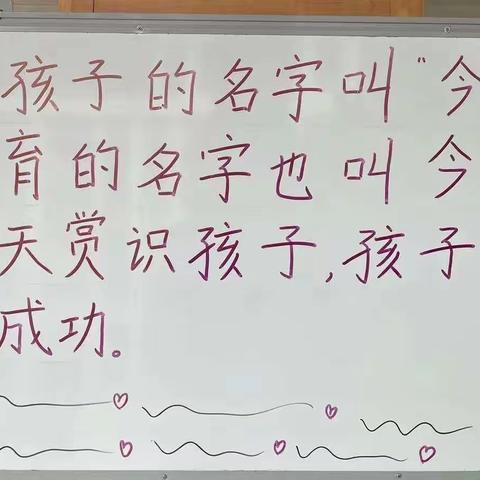 孩子的名字叫“今
育的名字也叫今
天赏识孩子,孩子
成功。